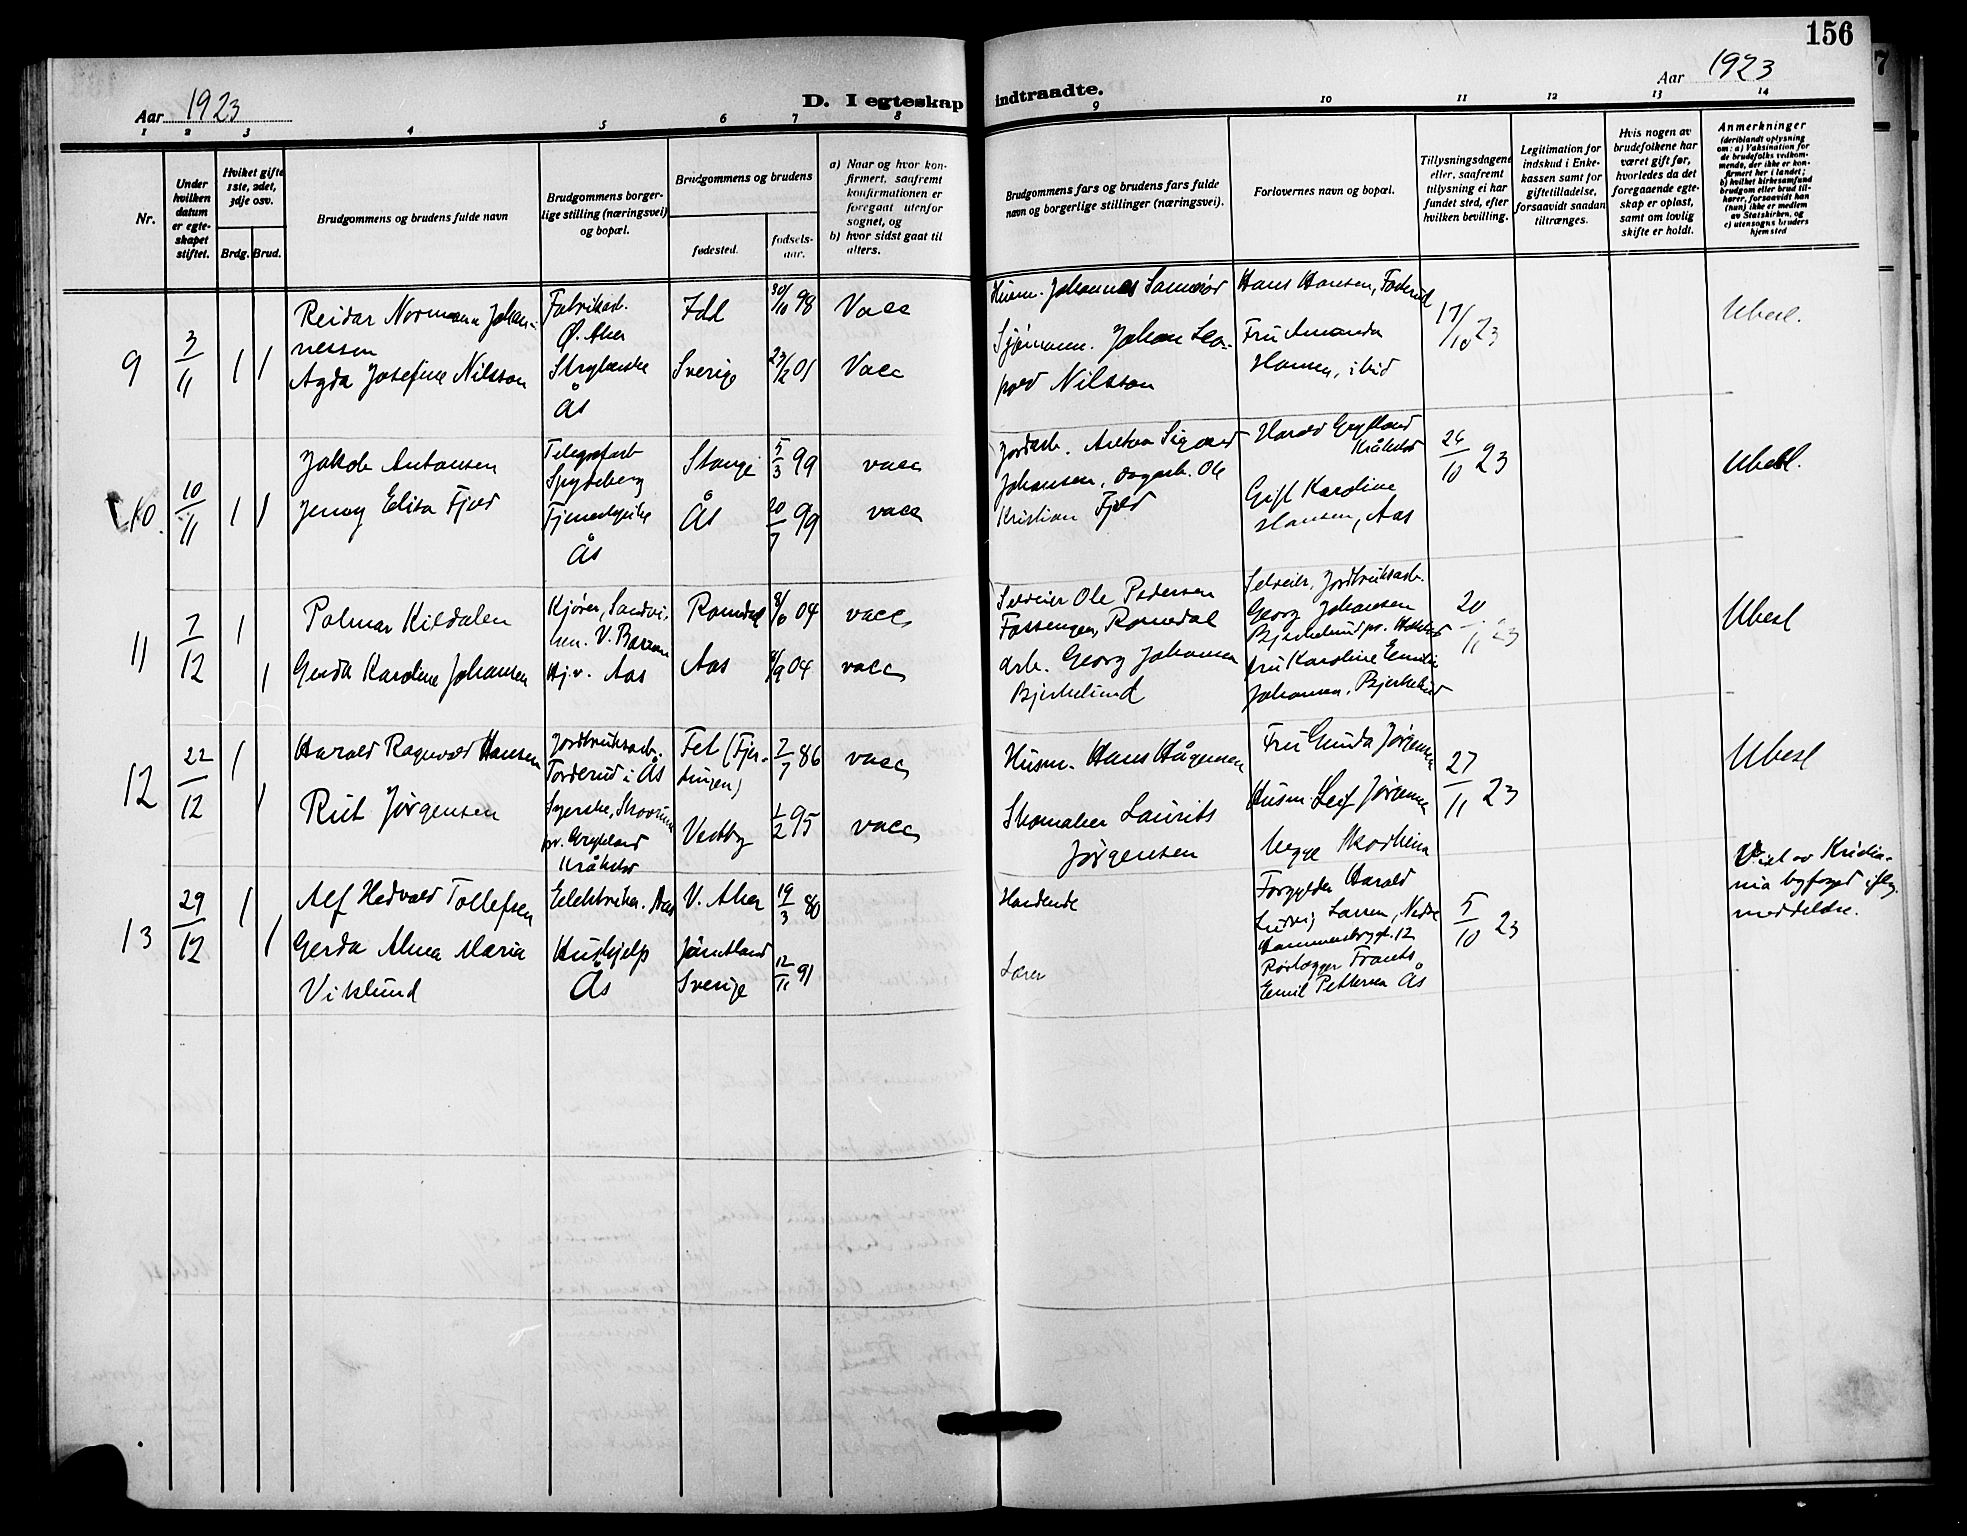 156
Aar 1923
D. I egteskap indtraadte.
Aar 1923
1 2 3 4 5 6 7 8 9 10 11 12 13 14
Nr.
Under hvilken datum er egteskapet stiftet.
Hviket gifte 1ste, 2det, 3dje osv.
Brdg. Brud.
Brudgommens og brudens fulde navn
Brudgommens borgerlige stilling (næringsvei) og bopæl.
Brudgommens og brudens
fødested.
fødselsaar.
a) Naar og hvor konfirmert, saafremt konfirmationen er foregaat utenfor sognet, og
b) hvor sidst gaat til alters.
Brudgommens fars og brudens fars fulde navn og borgerlige stillinger (næringsvei).
Forlovernes navn og bopæl.
Tillysningsdagene eller, saafremt tillysning ei har fundet sted, efter hvilken bevilling.
Legitimation for indskud i Enkekassen samt for giftetilladelse, forsaavidt saadan tiltrænges.
Hvis nogen av brudefolkene har været gift før, hvorledes da det foregaaende egteskap er opløst, samt om lovlig skifte er holdt.
Anmerkninger (deriblandt oplysning om: a) Vaksination for de brudefolks vedkommende, der ikke er konfirmert her i landet; b) hvilket kirkesamfund brudgom eller brud tilhører, forsaavidt han (hun) ikke er medlem av Statskirken, og c) utensogns bruders hjemsted
9 3/11 1 1
Reidar Normann Johannessen
Agda Josefine Nilsson
Fabrikarb.
Ø. Aker
Strykerske
Ås
Idd 30/10 98 Vacc
Sverige 23/12 01 Vacc
Husm. Johannes
Sjømann. Johan Leopold Nilsson
Hans Hansen,
Fru Amanda
Hansen, ibid
17/10 23
Ubesl.
10. 10/11 1 1
Jakob Antonsen
Jenny Elisa Fjeld
Telegrafarb
Spydeberg
Tjenestepike
Ås
Stange 5/3 99 vacc
Ås 20/7 99 vacc
Jordarb. Anton Sigvard
Johansen, dagarb. Ole
Kristian Fjeld
Harald Grytland
Kråkstad
Gift Karoline
Hansen, Aas
26/10 23
Ubesl.
11 7/12 1 1
Palmar Kildalen
Gerda Karoline Johansen
Kjører, Sandviken. V. Bærum
Hj.v. Aas
Romedal 04 vacc
Aas /9 04 vacc
Selveier Ole Pedersen
Fossengen, Romedal
arb. Georg Johansen
Bjerkelund
Selveier, Jordbruksarb.
Georg Johansen
Bjerkelund pr.
fru Karoline Emilie
Johansen, Bjerkelund
20/11 23
Ubesl
12 22/12 1 1
Harald Ragnvald Hansen
Rut Jørgensen
Jordbruksarb.
Torderud i Ås
Syerske, Skovum
pr. Grytland
Kråkstad
Fet (Fjerdingen) 2/7 86 vacc
Vestby 1/2 95 vacc
Husm. Hans Hågensen
Skomaker Laurits
Jørgensen
Fru Gunda Jørgensen
Husm Leif Jørgensen
27/11 23
Ubesl
13 29/12 1 1
Alf Hedvald Tollefsen
Gerda Alma Maria
Viklund
Elektriker. Aas
Hushjelp
Ås
V. Aker 19/3 80
Jämtland
Sverige 12/11 91
Handlende
Lærer
Forgylder Harald
Ludvig Larsen, Nedre
Hammersbrogt. 12
Rørlægger Frants
Emil Pettersen Ås
5/10 23
Viet av Kristiania byfoged iflg.
meddelelse.